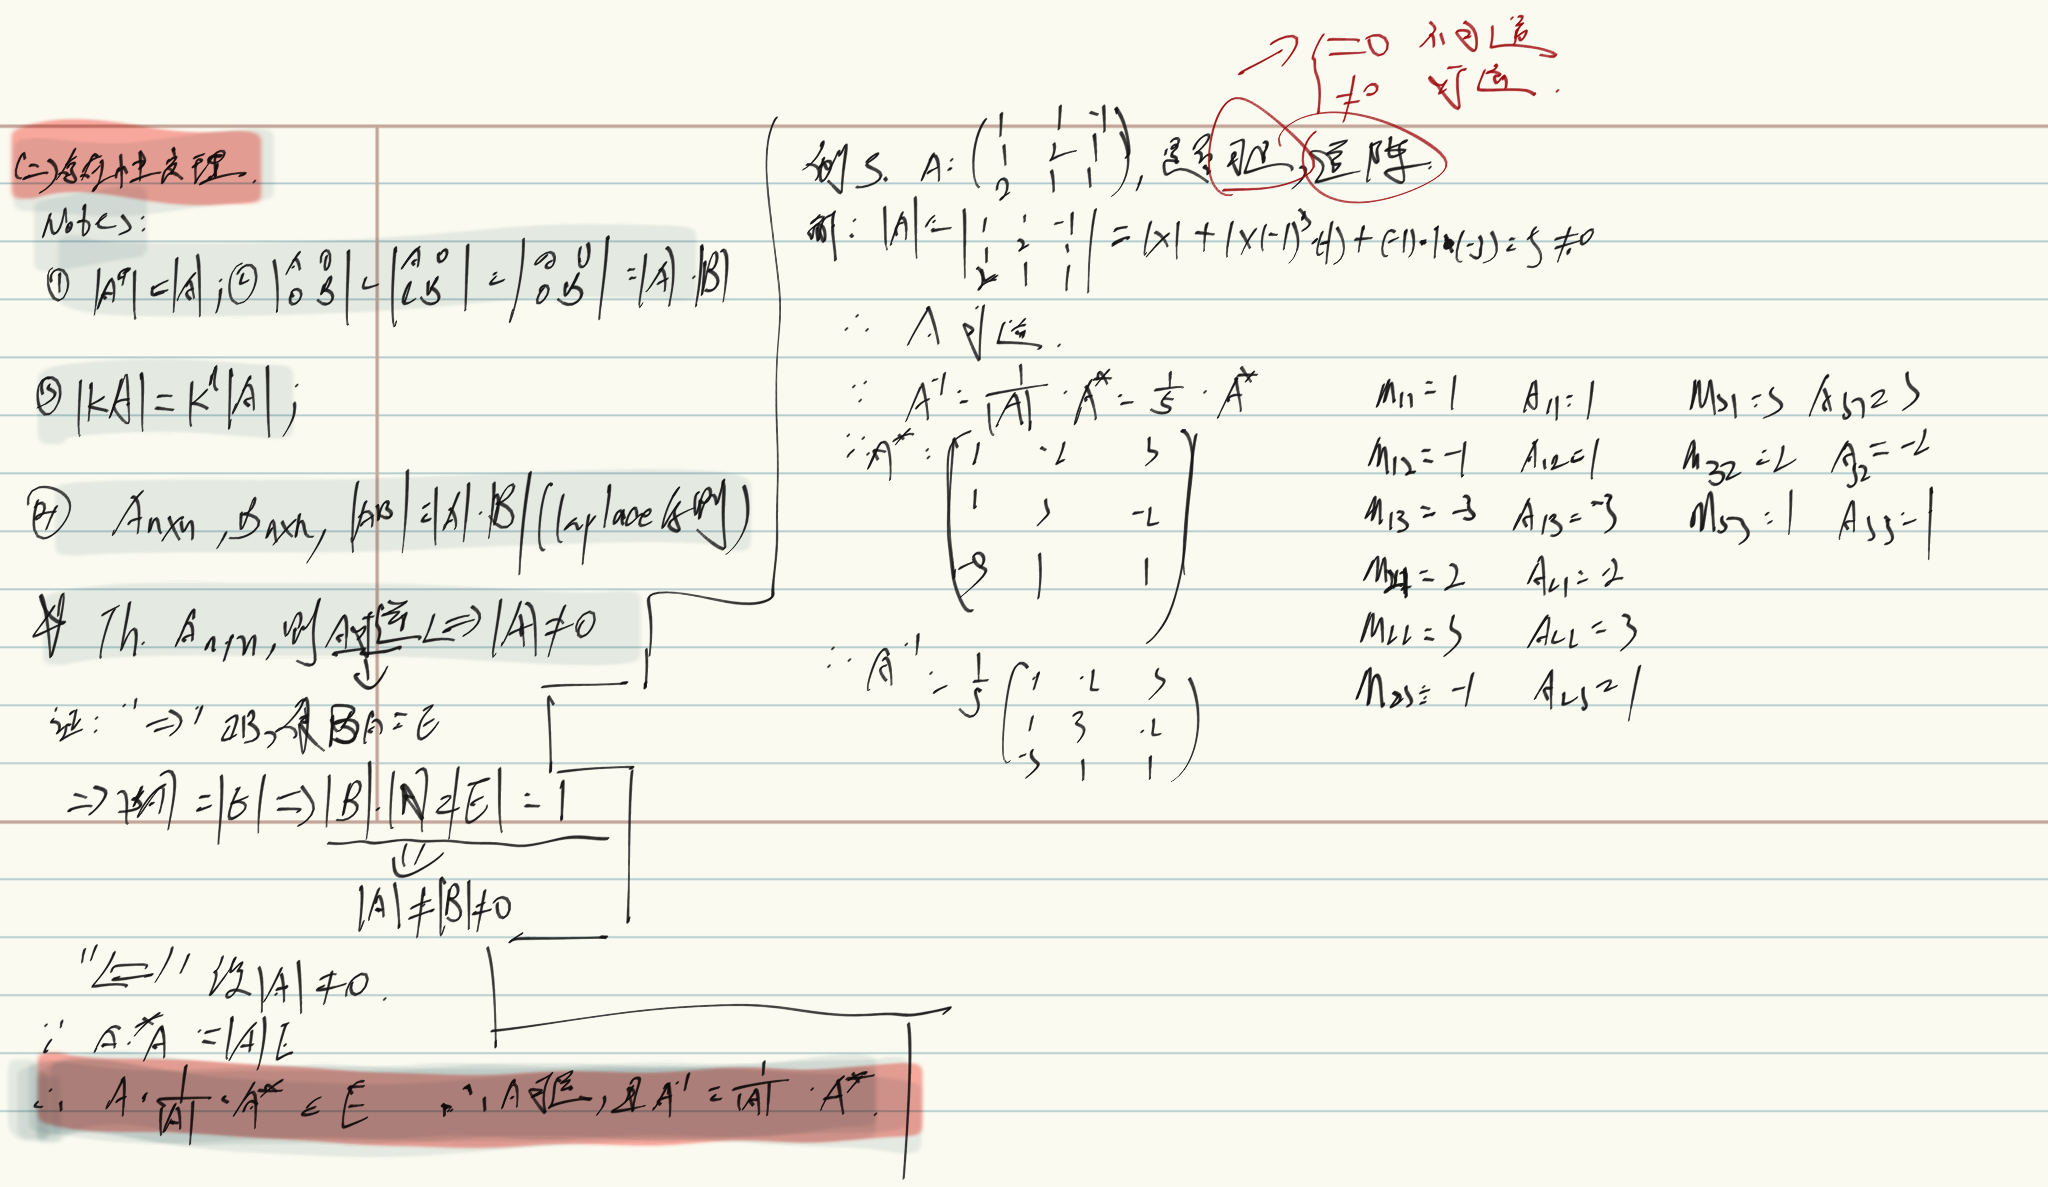 (二)存在性定理.
Notes:
① |Aᵀ| = |A| ; ② |A 0; 0 B| = |A 0; C B| = | 0; 0 B| = |A|·|B|
③ |kA| = kⁿ|A| ;
④ Aₙₓₙ , Bₙₓₙ, |AB| = |A|·|B| (Laplace
Th. Aₙₓₙ, 则 A可逆 <=> |A| ≠ 0
证: "=>" ∃B, 使 BA = E
=> |BA| = |E| => |B|·|A| = |E| = 1
|A| ≠ |B| ≠ 0
"<=" 设|A| ≠ 0.
∵ A·*A = |A|E
∴ A · 1/|A| · A* = E ∴ A可逆, 且 A⁻¹ = 1/|A| · A*.
=0 不可逆
≠0 可逆.
例5. A: (1 1 -1; 1 2 1; 2 1 1), 是否可逆, 逆阵.
解: |A| = |1 1 -1; 1 2 1; 2 1 1| = 1×1 + 1×(-1)³·(-1) + (-1)·1·(-3) = 5 ≠ 0
∴ A 可逆.
∵ A⁻¹ = 1/|A| · A* = 1/5 · A*
∵ A* = (1 -2 3
1 3 -2
-3 1 1)
∴ A⁻¹ = 1/5 (1 -2 3
1 3 -2
-3 1 1)
M₁₁ = 1 A₁₁ = 1 M₃₁ = 3 A₃₁ = 3
M₁₂ = -1 A₁₂ = 1 M₃₂ = 2 A₃₂ = -2
M₁₃ = -3 A₁₃ = -3 M₃₃ = 1 A₃₃ = 1
M₂₁ = 2 A₂₁ = -2
M₂₂ = 3 A₂₂ = 3
M₂₃ = -1 A₂₃ = 1